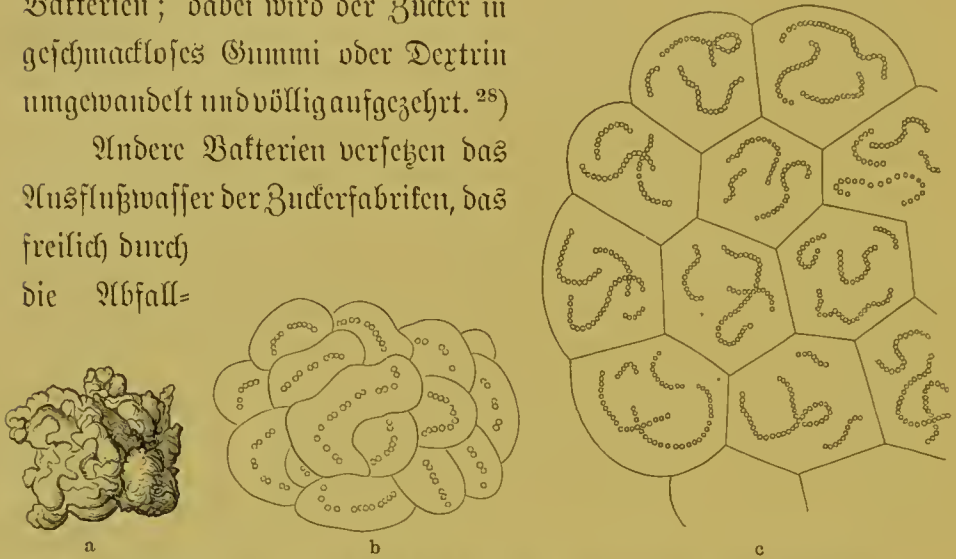 Bakterien; dabei wird der Zucker in
geschmackloses Gummi oder Dextrin
umgewandelt und völlig aufgezehrt. ²⁸)
Andere Bakterien versetzen das
Ausflußwasser der Zuckerfabriken, das
freilich durch
die Abfall=
a b c